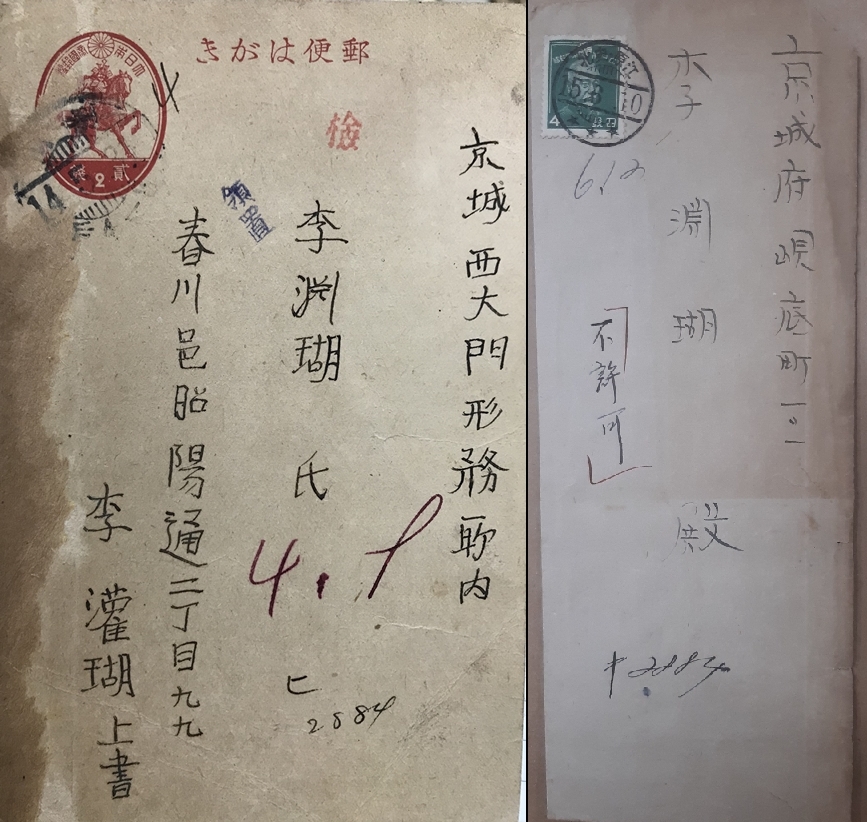 きがは便郵
大日本帝國郵便
貳錢
2
14
検
領置
京城西大門形務所内
李渊瑚氏
4.1
ヒ
2884
春川邑昭陽通二丁目九九
李灌瑚上書
京城府峴底町一〇一
李渊瑚殿
5.23
4
6.12
不許可
2884